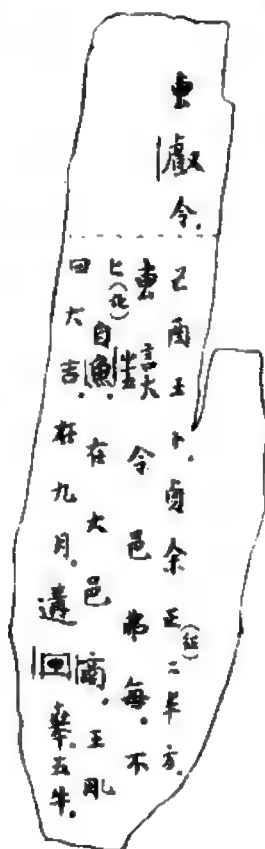 叀𠭯令.
己酉王卜.貞余正(征)二丰方.
叀令邑弗每.不
匕(化)自魚.在大邑商.王
曰大吉.在九月.遘 五牛.